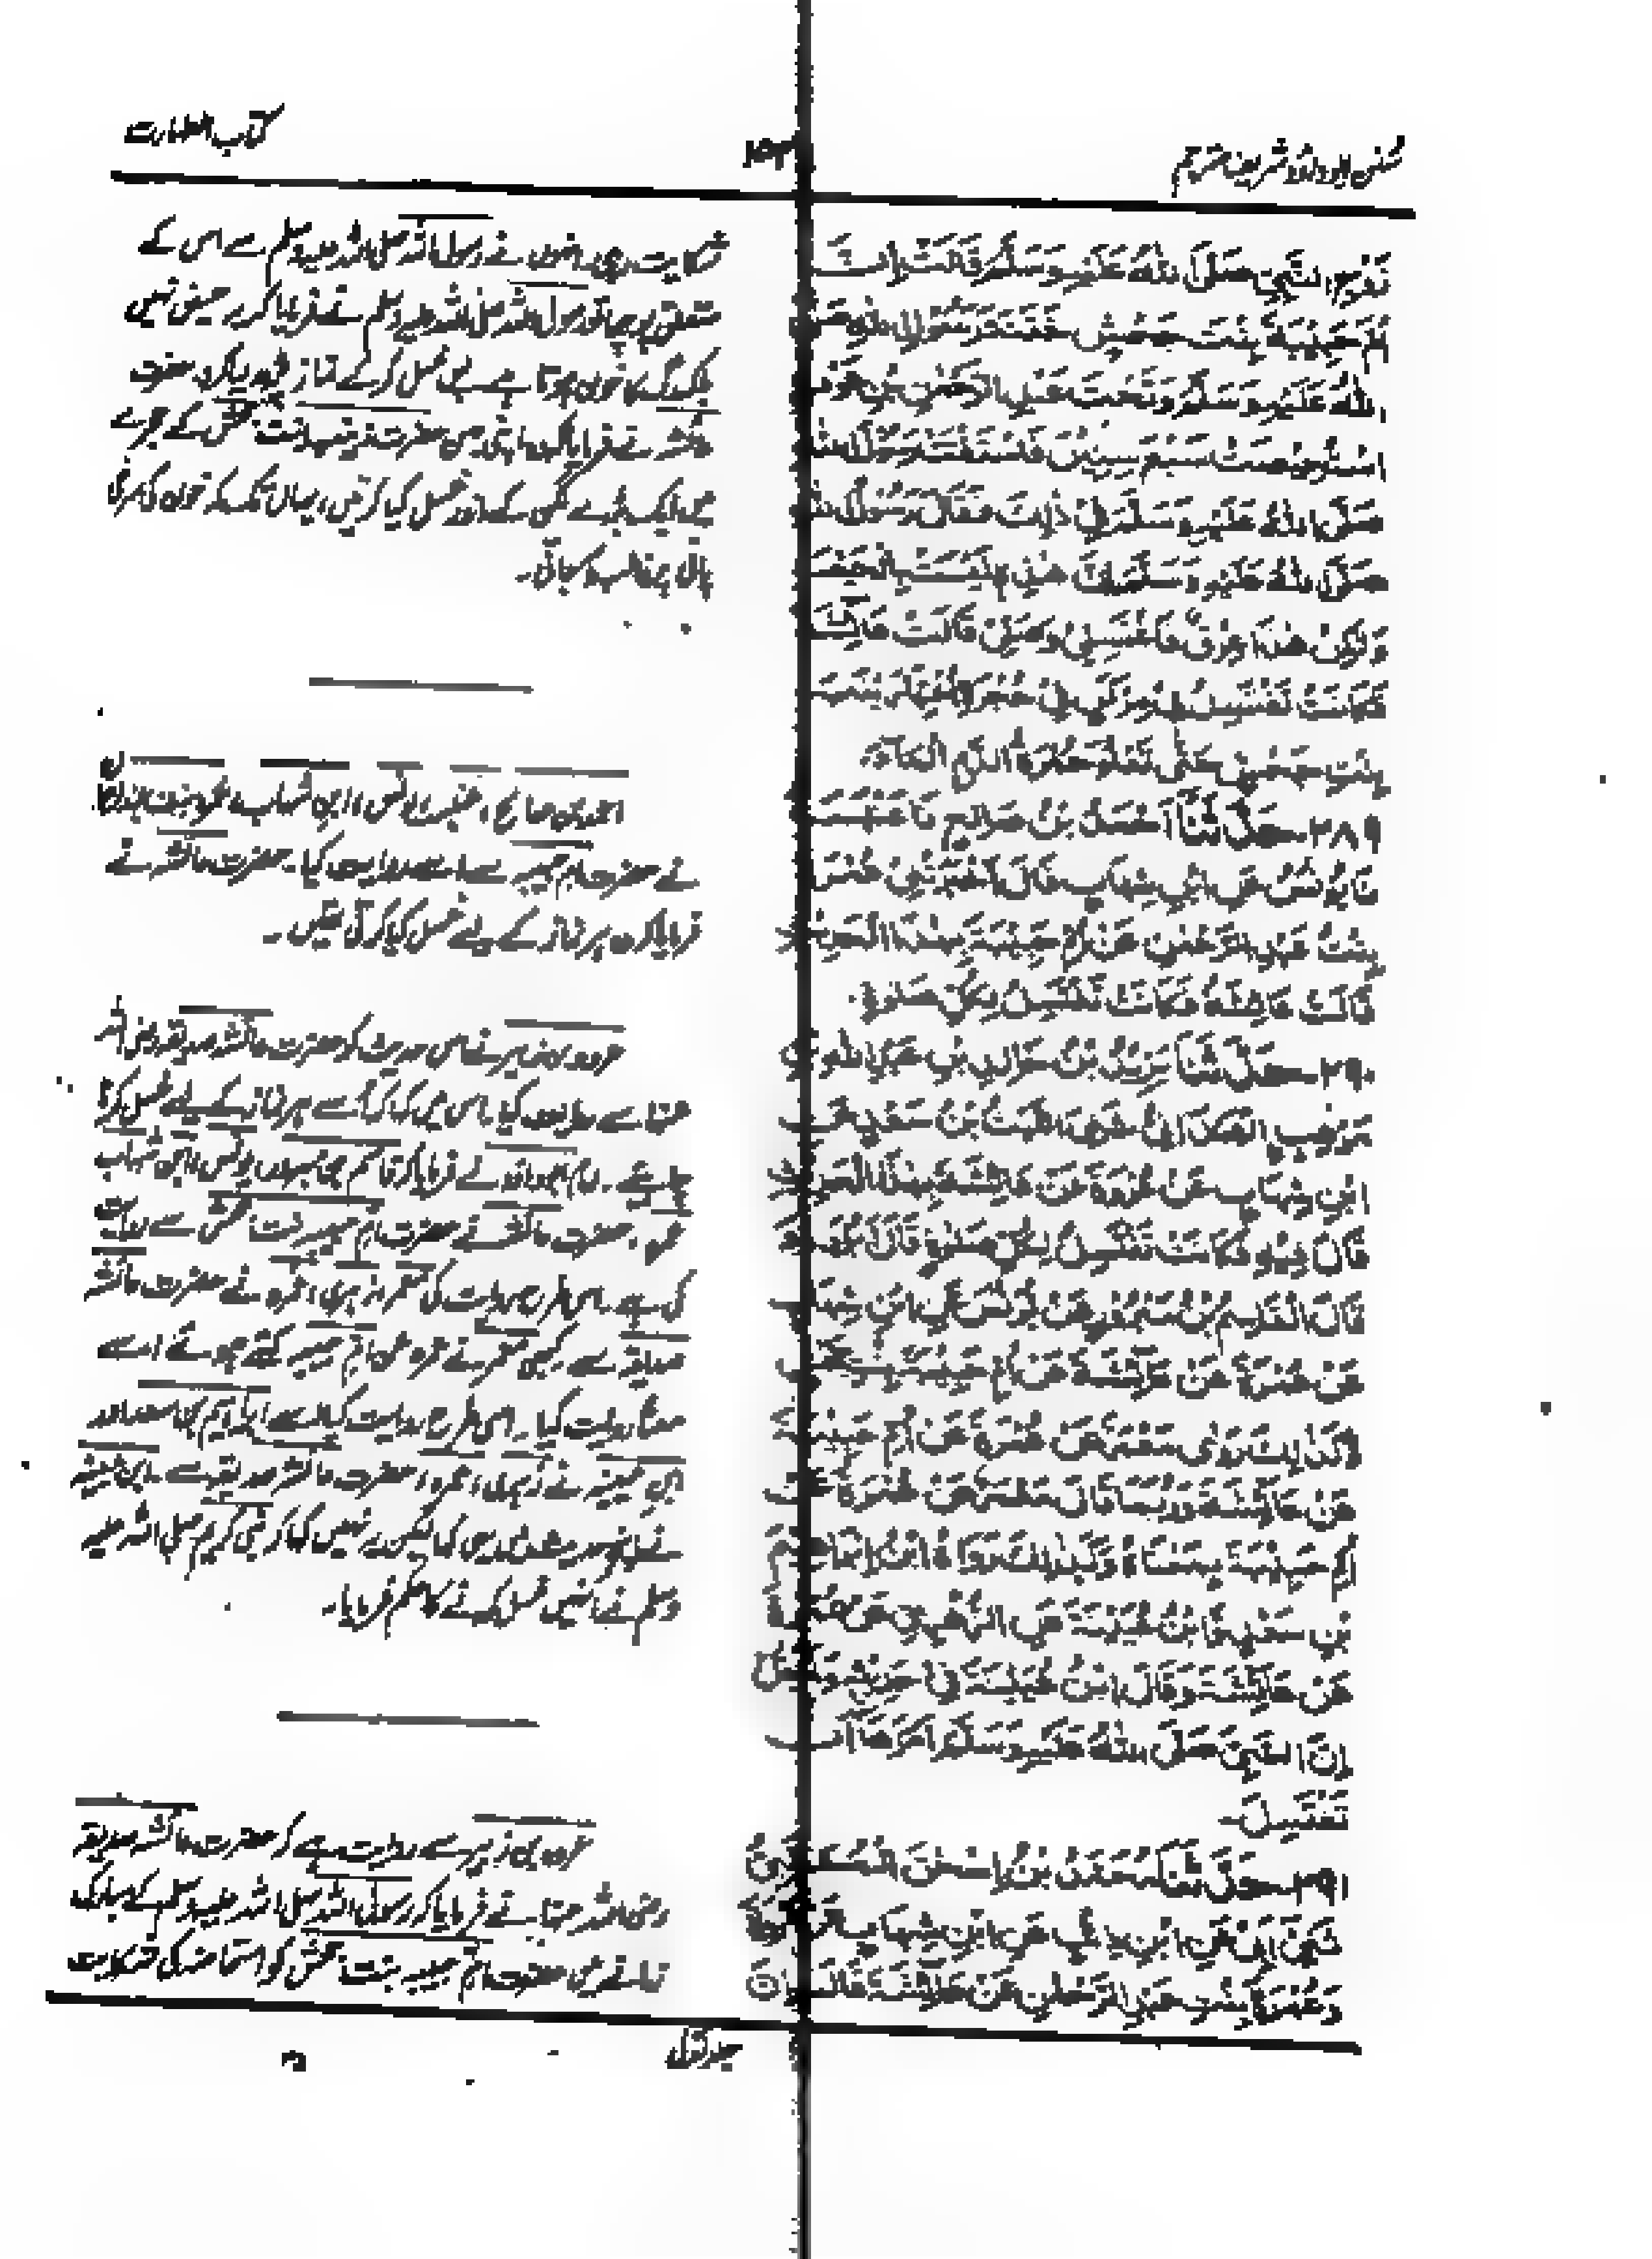 سنن ابوداؤد شریف مترجم
۱۵۳
کتاب الطہارت
زَوْجِ النَّبِيِّ صَلَّى اللهُ عَلَيْهِ وَسَلَّمَ قَالَتْ إِنَّ
أُمَّ حَبِيبَةَ بِنْتَ جَحْشٍ خَتَنَةَ رَسُولِ اللهِ صَلَّى
اللهُ عَلَيْهِ وَسَلَّمَ وَتَحْتَ عَبْدِ الرَّحْمٰنِ بْنِ عَوْفٍ
اسْتُحِيضَتْ سَبْعَ سِنِينَ فَاسْتَفْتَتْ رَسُولَ اللهِ
صَلَّى اللهُ عَلَيْهِ وَسَلَّمَ فِي ذٰلِكَ فَقَالَ رَسُولُ اللهِ
صَلَّى اللهُ عَلَيْهِ وَسَلَّمَ إِنَّ هٰذِهِ لَيْسَتْ بِالْحَيْضَةِ
وَلٰكِنْ هٰذَا عِرْقٌ فَاغْتَسِلِي وَصَلِّي قَالَتْ عَائِشَةُ
فَكَانَتْ تَغْتَسِلُ فِي مِرْكَنٍ فِي حُجْرَةِ أُخْتِهَا زَيْنَبَ
بِنْتِ جَحْشٍ حَتَّى تَعْلُوَ حُمْرَةُ الدَّمِ الْمَاءَ
۲۸۹ - حَدَّثَنَا أَحْمَدُ بْنُ صَالِحٍ نَا عَنْبَسَةُ
نَا يُونُسُ عَنِ ابْنِ شِهَابٍ قَالَ أَخْبَرَتْنِي عَمْرَةُ
بِنْتُ عَبْدِ الرَّحْمٰنِ عَنْ أُمِّ حَبِيبَةَ بِهٰذَا الْحَدِيثِ
قَالَتْ عَائِشَةُ فَكَانَتْ تَغْتَسِلُ لِكُلِّ صَلٰوةٍ.
۲۹۰ - حَدَّثَنَا يَزِيدُ بْنُ خَالِدِ بْنِ عَبْدِ اللهِ بْنِ
مَوْهَبٍ الْهَمْدَانِيُّ حَدَّثَنِي اللَّيْثُ بْنُ سَعْدٍ عَنِ
ابْنِ شِهَابٍ عَنْ عُرْوَةَ عَنْ عَائِشَةَ بِهٰذَا الْحَدِيثِ
قَالَ فِيهِ فَكَانَتْ تَغْتَسِلُ لِكُلِّ صَلٰوةٍ قَالَ أَبُو دَاوُدَ
قَالَ الْقَاسِمُ بْنُ مَبْرُورٍ عَنْ يُونُسَ عَنِ ابْنِ شِهَابٍ
عَنْ عَمْرَةَ عَنْ عَائِشَةَ عَنْ أُمِّ حَبِيبَةَ بِنْتِ جَحْشٍ
وَكَذٰلِكَ رَوٰى مَعْمَرٌ عَنِ الزُّهْرِيِّ عَنْ عَمْرَةَ
عَنْ عَائِشَةَ وَرُبَّمَا قَالَ مَعْمَرٌ عَنْ عَمْرَةَ عَنْ
أُمِّ حَبِيبَةَ بِمَعْنَاهُ وَكَذٰلِكَ رَوَاهُ إِبْرَاهِيمُ
بْنُ سَعْدٍ وَابْنُ عُيَيْنَةَ عَنِ الزُّهْرِيِّ عَنْ عَمْرَةَ
عَنْ عَائِشَةَ وَقَالَ ابْنُ عُيَيْنَةَ فِي حَدِيثِهِ وَلَمْ يَقُلْ
إِنَّ النَّبِيَّ صَلَّى اللهُ عَلَيْهِ وَسَلَّمَ أَمَرَهَا أَنْ
تَغْتَسِلَ -
۲۹۱ - حَدَّثَنَا مُحَمَّدُ بْنُ إِسْحٰقَ الْمُسَيَّبِيُّ
ثَنِي أَبِي عَنِ ابْنِ أَبِي ذِئْبٍ عَنِ ابْنِ شِهَابٍ عَنْ عُرْوَةَ
وَعَمْرَةَ بِنْتِ عَبْدِ الرَّحْمٰنِ عَنْ عَائِشَةَ قَالَتْ إِنَّ
شکایت رہی۔ انہوں نے رسول اللہ صلی اللہ علیہ وسلم سے اس کے
متعلق پوچھا تو رسول اللہ صلی اللہ علیہ وسلم نے فرمایا کہ یہ حیض نہیں
بلکہ رگ کا خون ہوتا ہے پس غسل کرکے نماز پڑھ لیا کرو۔ حضرت
عائشہ نے فرمایا کہ اپنی بہن حضرت زینب بنت جحش کے حجرے
میں ایک بڑے لگن کے اندر غسل کیا کرتیں، یہاں تک کہ خون کی سرخی
پانی پر غالب آ جاتی۔
احمد بن صالح، عنبسہ، یونس، ابن شہاب، عمرہ بنت عبدالرحمٰن
نے حضرت ام حبیبہ سے اسے روایت کیا۔ حضرت عائشہ نے
فرمایا کہ وہ ہر نماز کے لیے غسل کیا کرتی تھیں۔
عروہ بن زبیر نے اس حدیث کو حضرت عائشہ صدیقہ رضی اللہ
عنہا سے روایت کیا۔ اس میں کہا کہ اسے ہر نماز کے لیے غسل کرنا
چاہیے۔ امام ابوداؤد نے فرمایا کہ قاسم بن مبرور، یونس، ابن شہاب
عمرہ، حضرت عائشہ نے حضرت ام حبیبہ بنت جحش سے روایت
کی ہے۔ اسی طرح روایت کی معمر، زہری، عمرہ نے حضرت عائشہ
صدیقہ سے۔ کبھی معمر نے عمرہ عن ام حبیبہ کہتے ہوئے اسے
معناً روایت کیا۔ اسی طرح روایت کیا اسے ابراہیم بن سعد اور
ابن عیینہ نے زہری، عمرہ، حضرت عائشہ صدیقہ سے۔ ابن عیینہ
نے اپنی حدیث میں اس کی لیکن یہ نہیں کہا کہ نبی کریم صلی اللہ علیہ
وسلم نے انہیں غسل کرنے کا حکم فرمایا۔
عروہ بن زبیر سے روایت ہے کہ حضرت عائشہ صدیقہ
رضی اللہ عنہا نے فرمایا کہ رسول اللہ صلی اللہ علیہ وسلم کے مبارک
زمانے میں حضرت ام حبیبہ بنت جحش کو استحاضہ کی شکایت
جلد اول